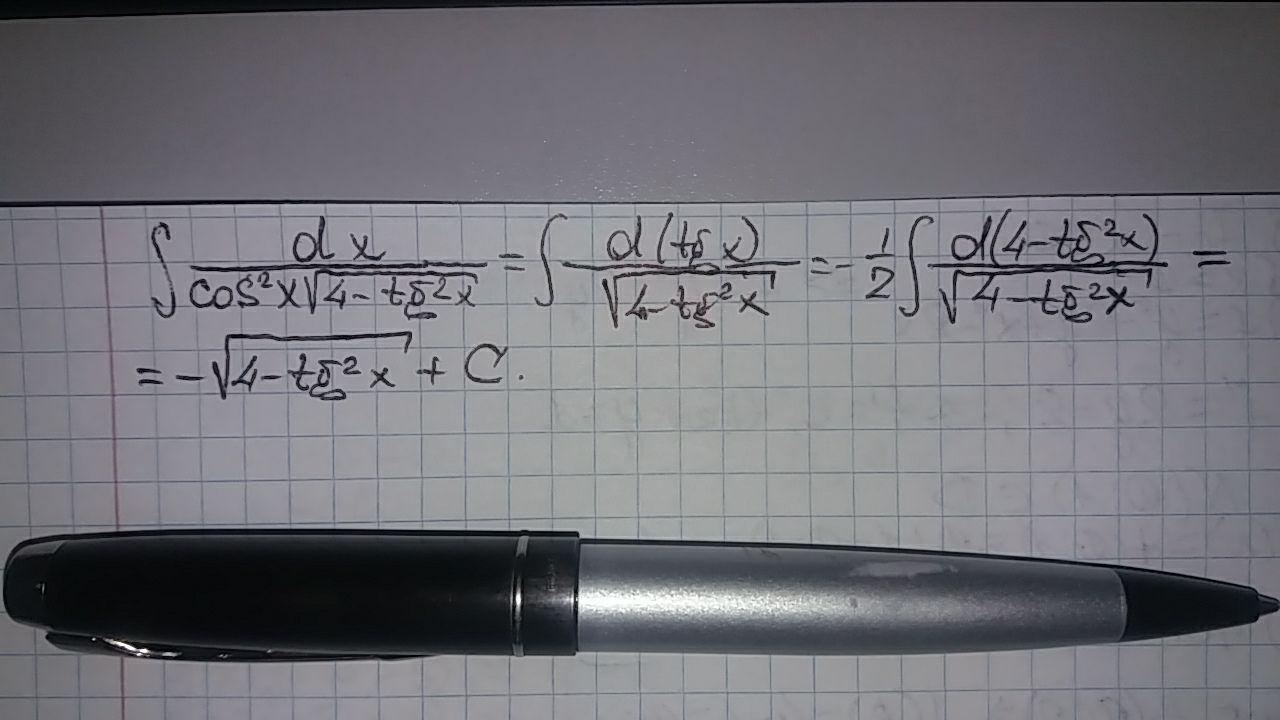 ∫ dx / (cos²x √(4-tg²x)) = ∫ d(tg x) / √(4-tg²x) = -1/2 ∫ d(4-tg²x) / √(4-tg²x) =
= -√(4-tg²x) + C.